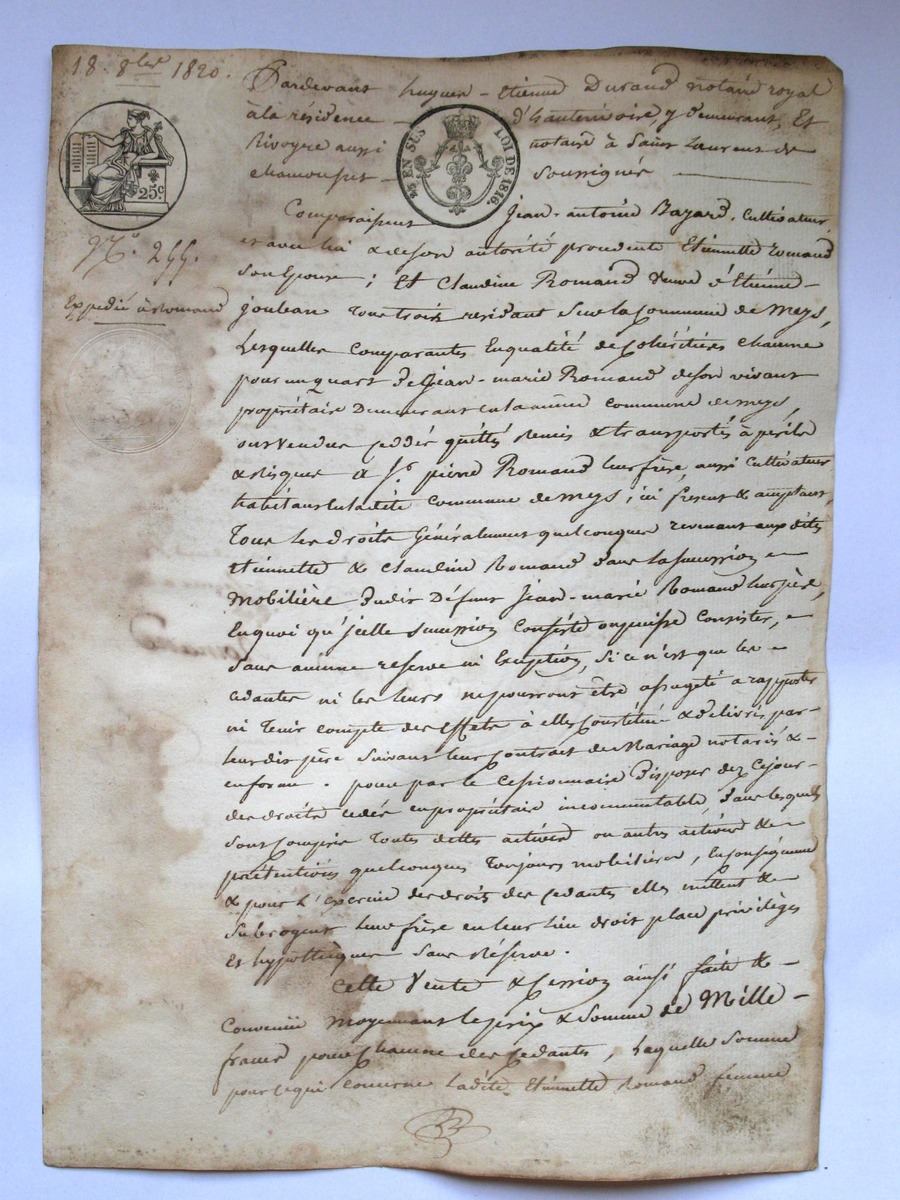 18. 8bre 1820.
Pardevant hugues-Etienne Durand notaire royal
à la résidence d'hauterivoire, y demeurant, Et
Rivoyre aussi notaire à Saint Laurent de
chamousset Soussignés
25 EN SUS LOI DE 1816.
25c
Comparaissent Jean-antoine Bazard, Cultivateur,
et avec lui & de son autorité procedente Etiennette Romand
Son Epouse ; Et Claudine Romand veuve d'Etienne
N.o 255.
Expedié à Romand
joubeau tous trois residant Sur la Commune de meys,
Lesquelles Comparantes En qualité de Cohéritières chacune
pour un quart De Jean-marie Romand de son vivant
propriétaire Demeurant en la même commune de meys
ont vendu ceddé quitté remis & transportés à périls
& risques à Sr. pierre Romand leur frère, aussi Cultivateur
habitant ladite commune de meys ; ici présent & acceptant,
Tous les droits Généralement quelconques revenant auxdites
etiennette & claudine Romand Dans la succession
Mobilière Dudit Défunt Jean-marie Romand leur père,
En quoi qu'icelle Succession Consiste ou puisse Consister,
Sans aucune reserve ni Exception, Si ce n'est que les
cedantes ni les leurs ne pourront être assugeté a rapporter
ni tenir compte des effets à elles Constitué & délivrés par
leur dit père Suivant leur Contrat de Mariage notariés &
en forme. pour par le Cessionnaire Disposer dez cejour
des droits cedés en propriétaire incommutable, Dans lesquels
Sont Compris Toutes dettes actives ou autres actives &
prétentions quelconques Toujours mobilières, En conséquence
& pour L'exercice des droits des cedantes elles mettent &
Subrogent leur frère en leur lieu droit place privilèges
Et hypothèques Sans Réserve.
Cette Vente & Cession ainsi faite &
Convenue moyennant le prix & Somme de Mille
francs pour chacune des cedantes, Laquelle Somme
pour ce qui concerne Ladite Etiennette Romand femme